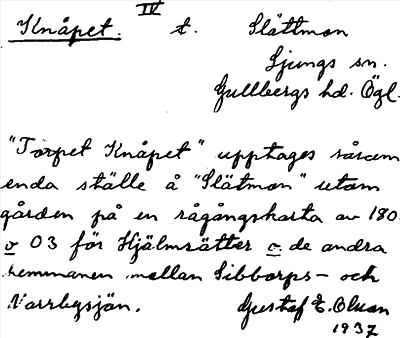 IV
Knåpet. t. Slättmon
Ljungs sn.
Gullbergs hd. Ögl.
"Torpet Knåpet" upptages såsom
enda ställe å "Slätmon" utom
gården på en rågångskarta av 180
o 03 för Hjälmsätter o. de andra
hemmanen mellan Sibborps- och
Norrbysjön. Gustaf E. Olsson
1937